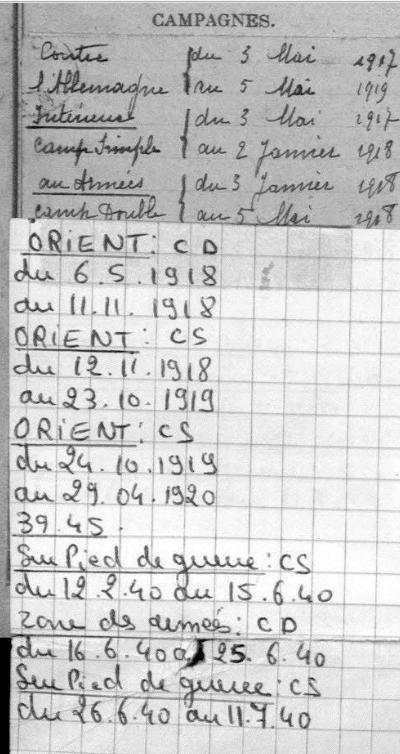 CAMPAGNES.
Contre { du 3 Mai 1917
l'Allemagne { au 5 Mai 1919
Intérieur { du 3 Mai 1917
camp Simple { au 2 Janvier 1918
au Armées { du 3 Janvier 1918
camp Double { au 5 Mai 1918
ORIENT : CD
du 6.5.1918
au 11.11.1918
ORIENT : CS
du 12.11.1918
au 23.10.1919
ORIENT : CS
du 24.10.1919
au 29.04.1920
39.45.
Sur Pied de guerre : CS
du 12.2.40 au 15.6.40
Zone des armées : CD
du 16.6.40 au 25.6.40
Sur Pied de guerre : CS
du 26.6.40 au 11.7.40